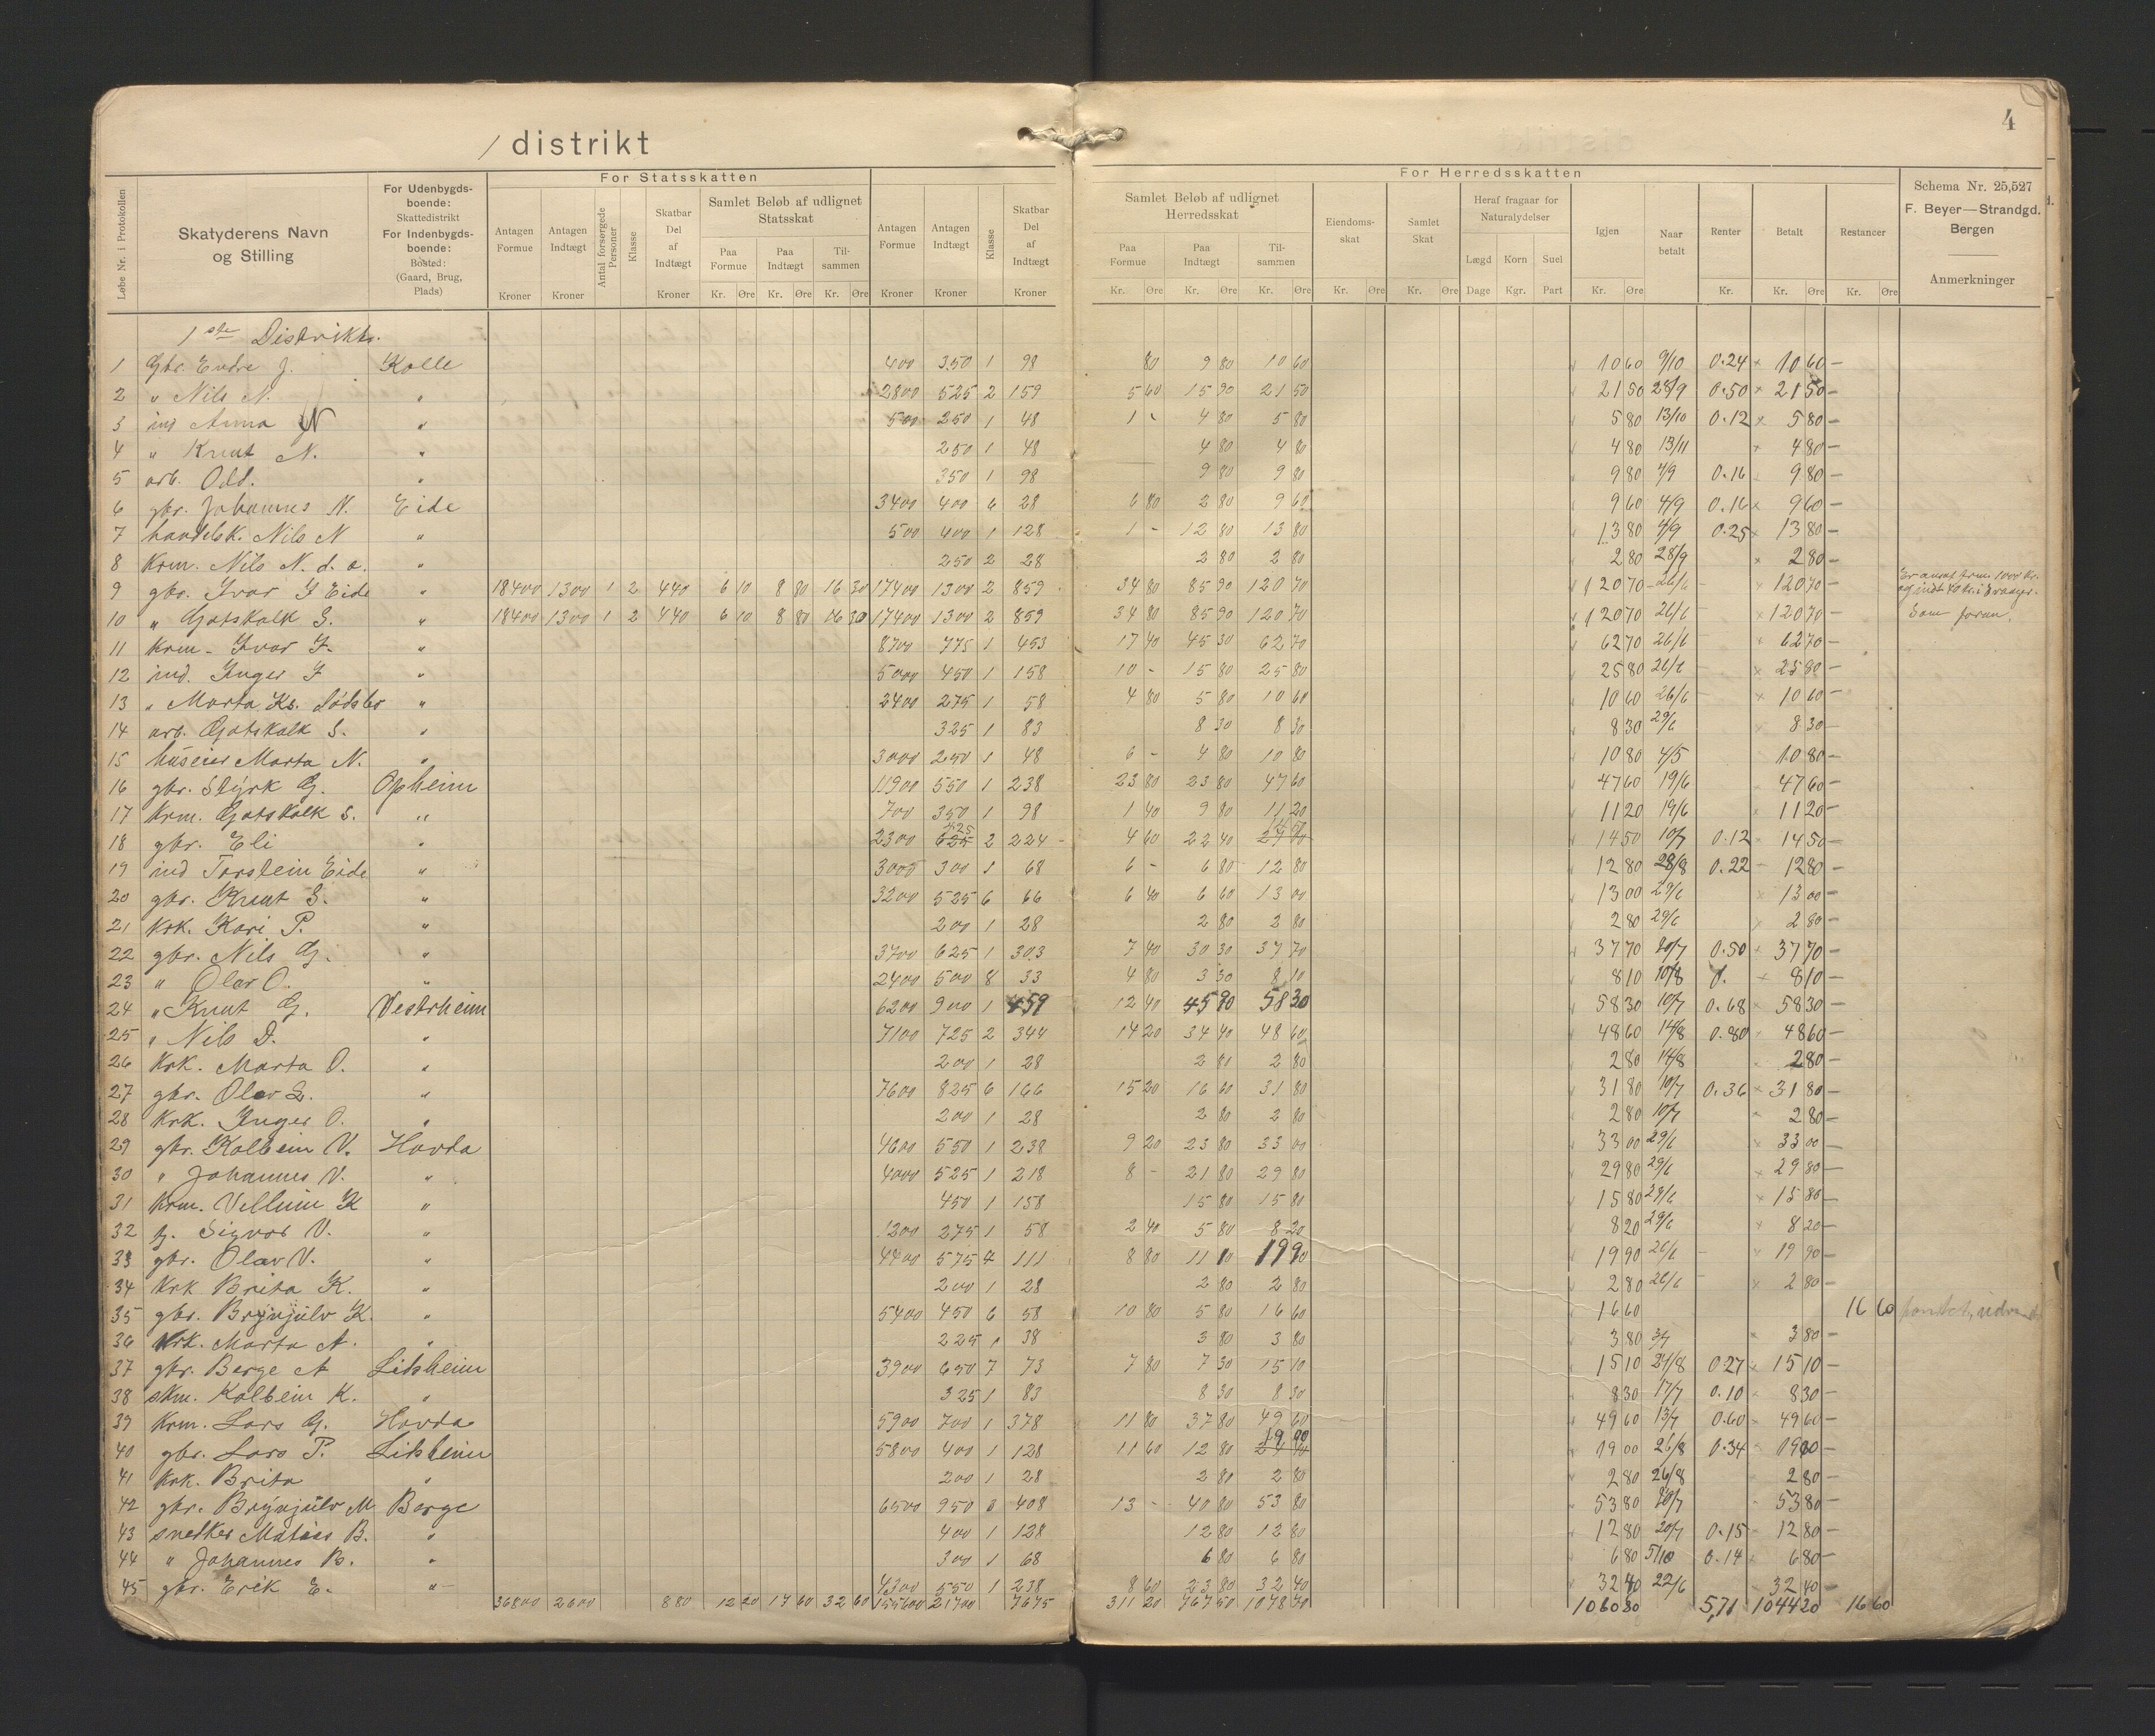 4
1 distrikt
For Statsskatten
For Herredsskatten
Løbe Nr. i Protokollen
Skatyderens Navn og Stilling
For Udenbygdsboende: Skattedistrikt For Indenbygdsboende: Bosted: (Gaard, Brug, Plads)
Antagen Formue Kroner
Antagen Indtægt Kroner
Antal forsørgede Personer
Klasse
Skatbar Del af Indtægt Kroner
Samlet Beløb af udlignet Statsskat
Paa Formue Kr. Øre
Paa Indtægt Kr. Øre
Tilsammen Kr. Øre
Antagen Formue Kroner
Antagen Indtægt Kroner
Klasse
Skatbar Del af Indtægt Kroner
Samlet Beløb af udlignet Herredsskat
Paa Formue Kr. Øre
Paa Indtægt Kr. Øre
Tilsammen Kr. Øre
Eiendomsskat Kr. Øre
Samlet Skat Kr. Øre
Heraf fragaar for Naturalydelser
Lægd Dage
Korn Kgr.
Suel Part
Igjen Kr. Øre
Naar betalt
Renter Kr.
Betalt Kr. Øre
Restancer Kr. Øre
Schema Nr. 25,527
F. Beyer—Strandgd.
Bergen
Anmerkninger
1ste Distrikt.
1 Gbr. Endre J. Kolle 400 350 1 98 80 9 80 10 60 10 60 9/10 0.24 × 10 60 —
2 " Nils N. " 2800 525 2 159 5 60 15 90 21 50 21 50 28/9 0.50 × 21 50 —
3 ind Anna N " 500 250 1 48 1 - 4 80 5 80 5 80 13/10 0.12 × 5 80 —
4 " Knut N. " 250 1 48 4 80 4 80 4 80 13/11 × 4 80 —
5 arb. Odd. " 350 1 98 9 80 9 80 9 80 4/9 0.16 9 80 —
6 gbr. Johannes N. Eide 3400 400 6 28 6 80 2 80 9 60 9 60 4/9 0.16 × 9 60 —
7 handelsk. Nils N " 500 400 1 128 1 - 12 80 13 80 13 80 4/9 0.25 × 13 80 —
8 krm. Nils N. d. a. " 250 2 28 2 80 2 80 2 80 28/9 × 2 80 —
9 gbr. Ivar I Eide " 18400 1300 1 2 440 6 10 8 80 16 30 17400 1300 2 859 34 80 85 90 120 70 120 70 26/6 × 120 70 —
10 " Gotskalk S. " 18400 1300 1 2 440 6 10 8 80 16 30 17400 1300 2 859 34 80 85 90 120 70 120 70 26/6 × 120 70 — Som foran.
11 krm - Ivar I. " 8700 775 1 453 17 40 45 30 62 70 62 70 26/6 × 62 70 —
12 ind. Inger I " 5000 450 1 158 10 - 15 80 25 80 25 80 26/6 × 25 80 —
13 " Marta Ks. dødsbo " 2400 275 1 58 4 80 5 80 10 60 10 60 26/6 × 10 60 —
14 arb. Gotskalk S. " 325 1 83 8 30 8 30 8 30 29/6 8 30 —
15 húseier Marta N. " 3000 250 1 48 6 - 4 80 10 80 10 80 4/5 10 80 —
16 gbr. Styrk G. Opheim 11900 550 1 238 23 80 23 80 47 60 47 60 19/6 47 60 —
17 krm. Gotskalk S. " 700 350 1 98 1 40 9 80 11 20 11 20 19/6 × 11 20 —
18 gbr. Eli " 2300 625 425 2 224 4 60 22 40 14 50 14 50 10/7 0.12 14 50 —
19 ind Torstein Eide " 3000 300 1 68 6 - 6 80 12 80 12 80 28/8 0.22 12 80 —
20 gbr. Knut S. " 3200 525 6 66 6 40 6 60 13 00 13 00 29/6 × 13 00 —
21 krk. Kari P. " 200 1 28 2 80 2 80 2 80 29/6 × 2 80 —
22 gbr. Nils G. " 3700 625 1 303 7 40 30 30 37 70 37 70 20/7 0.50 × 37 70 —
23 " Olav O. " 2400 500 8 33 4 80 3 30 8 10 8 10 10/8 × 8 10 —
24 " Knut G. Vestrheim 6200 900 1 459 12 40 45 90 58 30 58 30 10/7 0.68 × 58 30 —
25 " Nils D. " 7100 725 2 344 14 20 34 40 48 60 48 60 14/8 0.80 × 48 60 —
26 krk. Marta O. " 200 1 28 2 80 2 80 2 80 14/8 2 80 —
27 gbr. Olav L. " 7600 825 6 166 15 20 16 60 31 80 31 80 10/7 0.36 × 31 80 —
28 krk. Inger O. " 200 1 28 2 80 2 80 2 80 10/7 × 2 80 —
29 gbr. Kolbein V. Hovda 4600 550 1 238 9 20 23 80 33 00 33 00 29/6 × 33 00 —
30 " Johannes V. " 4000 525 1 218 8 - 21 80 29 80 29 80 29/6 × 29 80 —
31 krm. Vellum K " 450 1 158 15 80 15 80 15 80 29/6 × 15 80 —
32 f. Sigvor V. " 1200 275 1 58 2 40 5 80 8 20 8 20 29/6 × 8 20 —
33 gbr. Olav V. " 4400 575 4 111 8 80 11 10 19 90 19 90 26/6 × 19 90 —
34 krk Brita K. " 200 1 28 2 80 2 80 2 80 26/6 × 2 80 —
35 gbr. Brynjulv K. " 5400 450 6 58 10 80 5 80 16 60 16 60 16 60
36 krk. Marta A. " 225 1 38 3 80 3 80 3 80 3/7 × 3 80 —
37 gbr. Berge A Litsheim 3900 650 7 73 7 80 7 30 15 10 15 10 24/8 0.27 × 15 10 —
38 skm. Kolbein K. " 325 1 83 8 30 8 30 8 30 17/7 0.10 × 8 30 —
39 krm. Lars G. Hovda 5900 700 1 378 11 80 37 80 49 60 49 60 13/7 0.60 × 49 60 —
40 gbr. Lars P. Litsheim 5800 400 1 128 11 60 12 80 19 00 19 00 26/8 0.34 19 00 —
41 krk. Brita " 200 1 28 2 80 2 80 2 80 26/8 2 80 —
42 gbr. Brynjulv M Berge 6500 950 3 408 13 - 40 80 53 80 53 80 20/7 53 80 —
43 snedker Matias B. " 400 1 128 12 80 12 80 12 80 20/7 0.15 12 80 —
44 " Johannes B. " 300 1 68 6 80 6 80 6 80 5/10 0.14 × 6 80 —
45 gbr. Erik E. " 4300 550 1 238 8 60 23 80 32 40 32 40 22/6 × 32 40 —
36800 2600 880 12 20 17 60 32 60 155600 21700 7675 311 20 767 50 1078 70 1060 80 5,71 1044 20 16 60